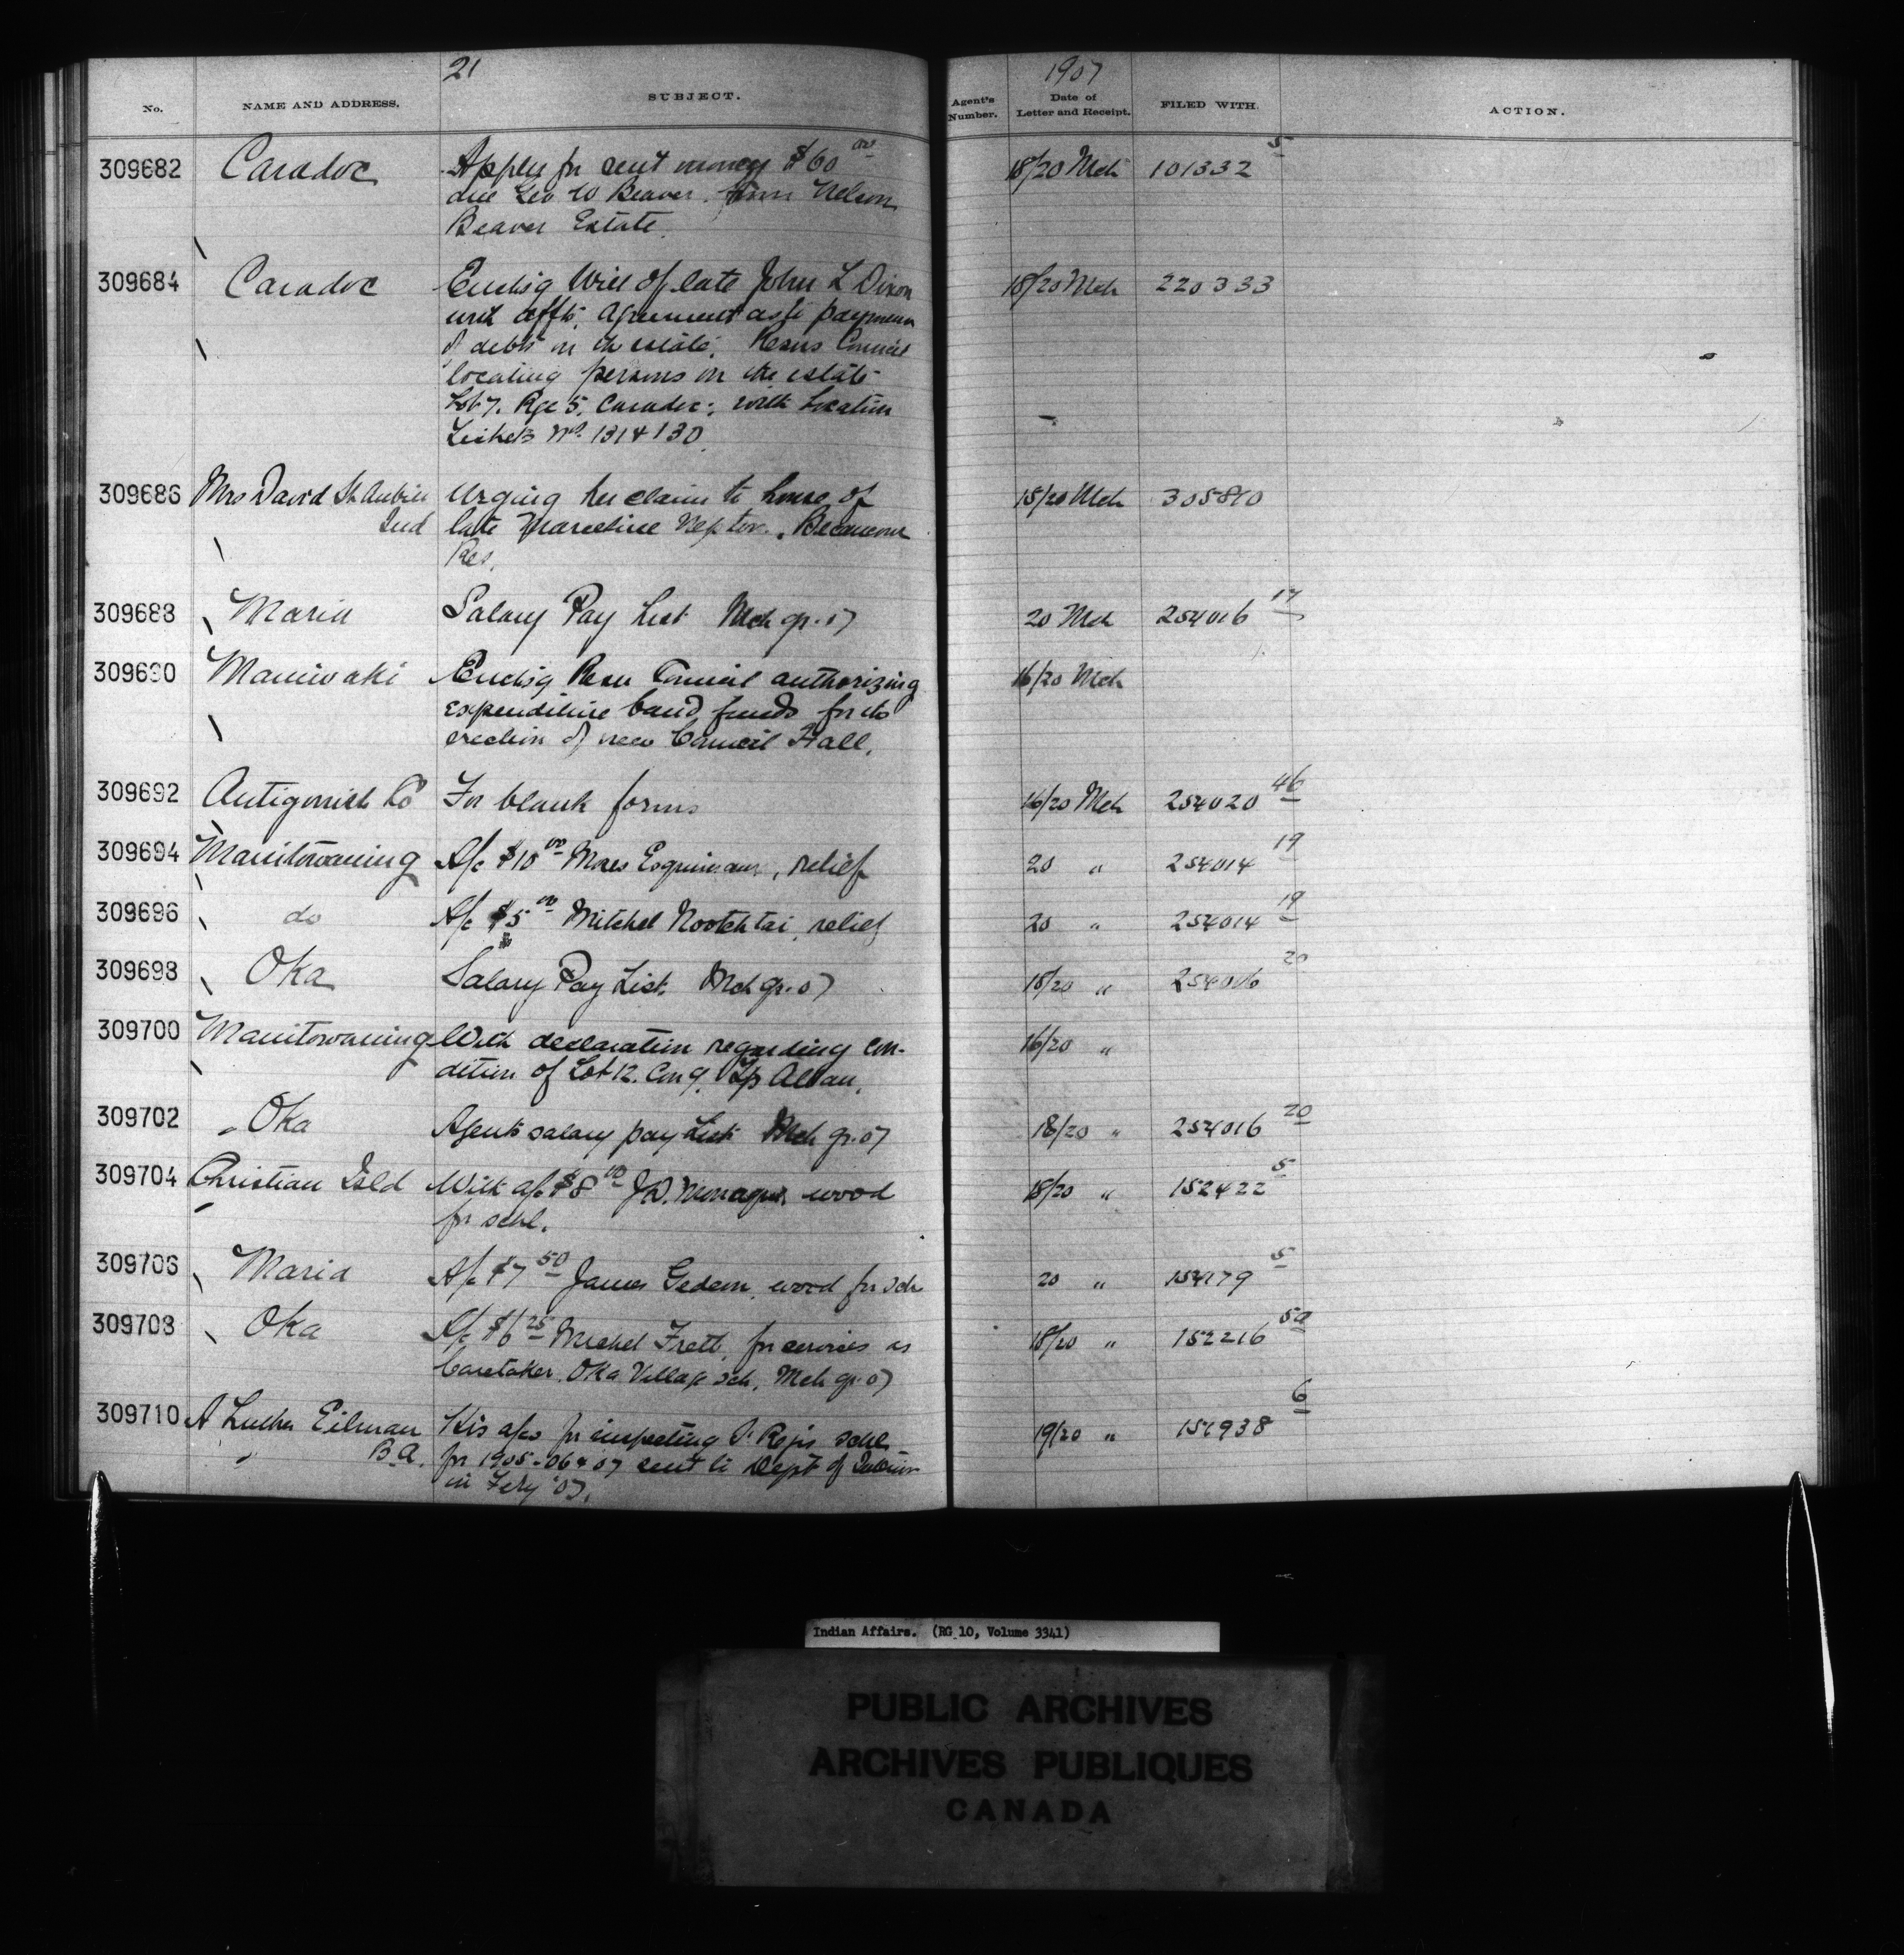 21
1907
No. NAME AND ADDRESS. SUBJECT. Agent's Number. Date of Letter and Receipt. FILED WITH. ACTION.
309682 Caradoc Apples for rent money $60 00 18/20 Mch 101332 5
due Geo W Beaver from Nelson
Beaver Estate
309684 Caradoc Enclsg Will of late John L Dixon 18/20 Mch 220333
with affts, agreement payment
of debts on the estate, Resns Council
locating persons on the estate
Lot 7. Rge 5. Caradoc; with Location
Tickets Nos. 131 & 130
309686 Mrs David St Aubin Urging her claim to house of 15/20 Mch 305810
Ind late Marceline Neptor, Becancour
Res.
309688 Maria Salary Pay List Mch qr. 07 20 Mch 254016 17
309690 Maniwaki Enclsg Resn Council authorizing 16/20 Mch
expenditure band funds for the
erection of new Council Hall.
309692 Antigonish Co For blank forms 16/20 Mch 254020 46
309694 Manitowaning A/c $10 00 Moses, relief 20 " 254014 19
309696 do A/c $5 00 Mitchel Nootchtai, relief 20 " 254014 19
309698 Oka Salary Pay List. Mch qr. 07 18/20 " 254016 20
309700 Manitowaning With declaration regarding con- 16/20 "
dition of Lot 12. Con 9. Tp Allan.
309702 Oka Agents salary pay List Mch qr. 07 18/20 " 254016 20
309704 Christian Isld With a/c $8 00 J.D. wood 18/20 " 152422 5
for schl.
309706 Maria A/c $7 50 James Gedeon, wood for sch 20 " 154179 5
309708 Oka A/c $6 25 Michel for services as 18/20 " 152216 50
Caretaker, Oka Village sch, Mch qr. 07
309710 A Luther Eilman His a/cs for inspecting St Regis schl 19/20 " 938 6
B.A. for 1905-06 & 07 sent to Dept of Interior
in Feby '07.
Indian Affairs. (RG 10, Volume 3341)
PUBLIC ARCHIVES
ARCHIVES PUBLIQUES
CANADA